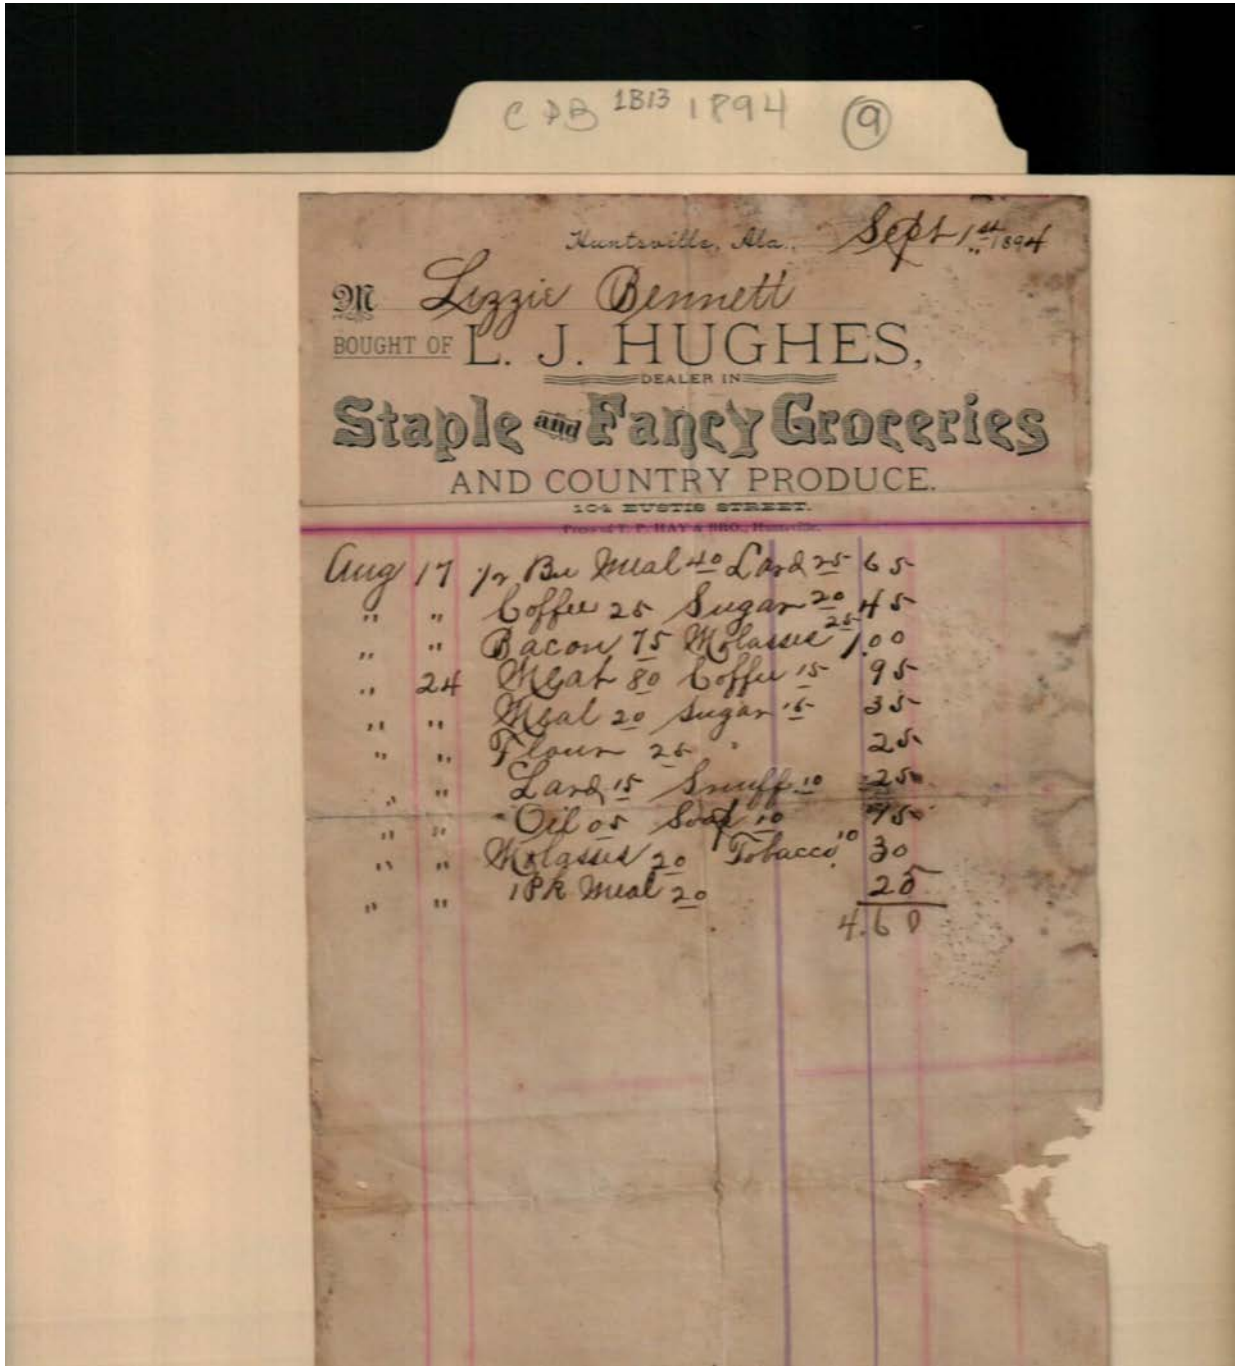 C D B 1B13 1894 9
Huntsville, Ala., Sept 1st 1894
M Lizzie Bennett
BOUGHT OF L. J. HUGHES,
DEALER IN
Staple and Fancy Groceries
AND COUNTRY PRODUCE.
104 EUSTIS STREET.
Press of T. P. HAY & BRO., Huntsville.
Aug 17 1/2 Bu Meal 40 Lard 25 65
" " Coffee 25 Sugar 20 45
" " Bacon 75 Molasses 25 1.00
" 24 Meat 80 Coffee 15 95
" " Meal 20 Sugar 15 35
" " Flour 25 " 25
" " Lard 15 Snuff 10 25
" " Oil 05 Soap 10 15
" " Molasses 20 Tobacco 10 30
" " 1 PK Meal 20 20
4.60